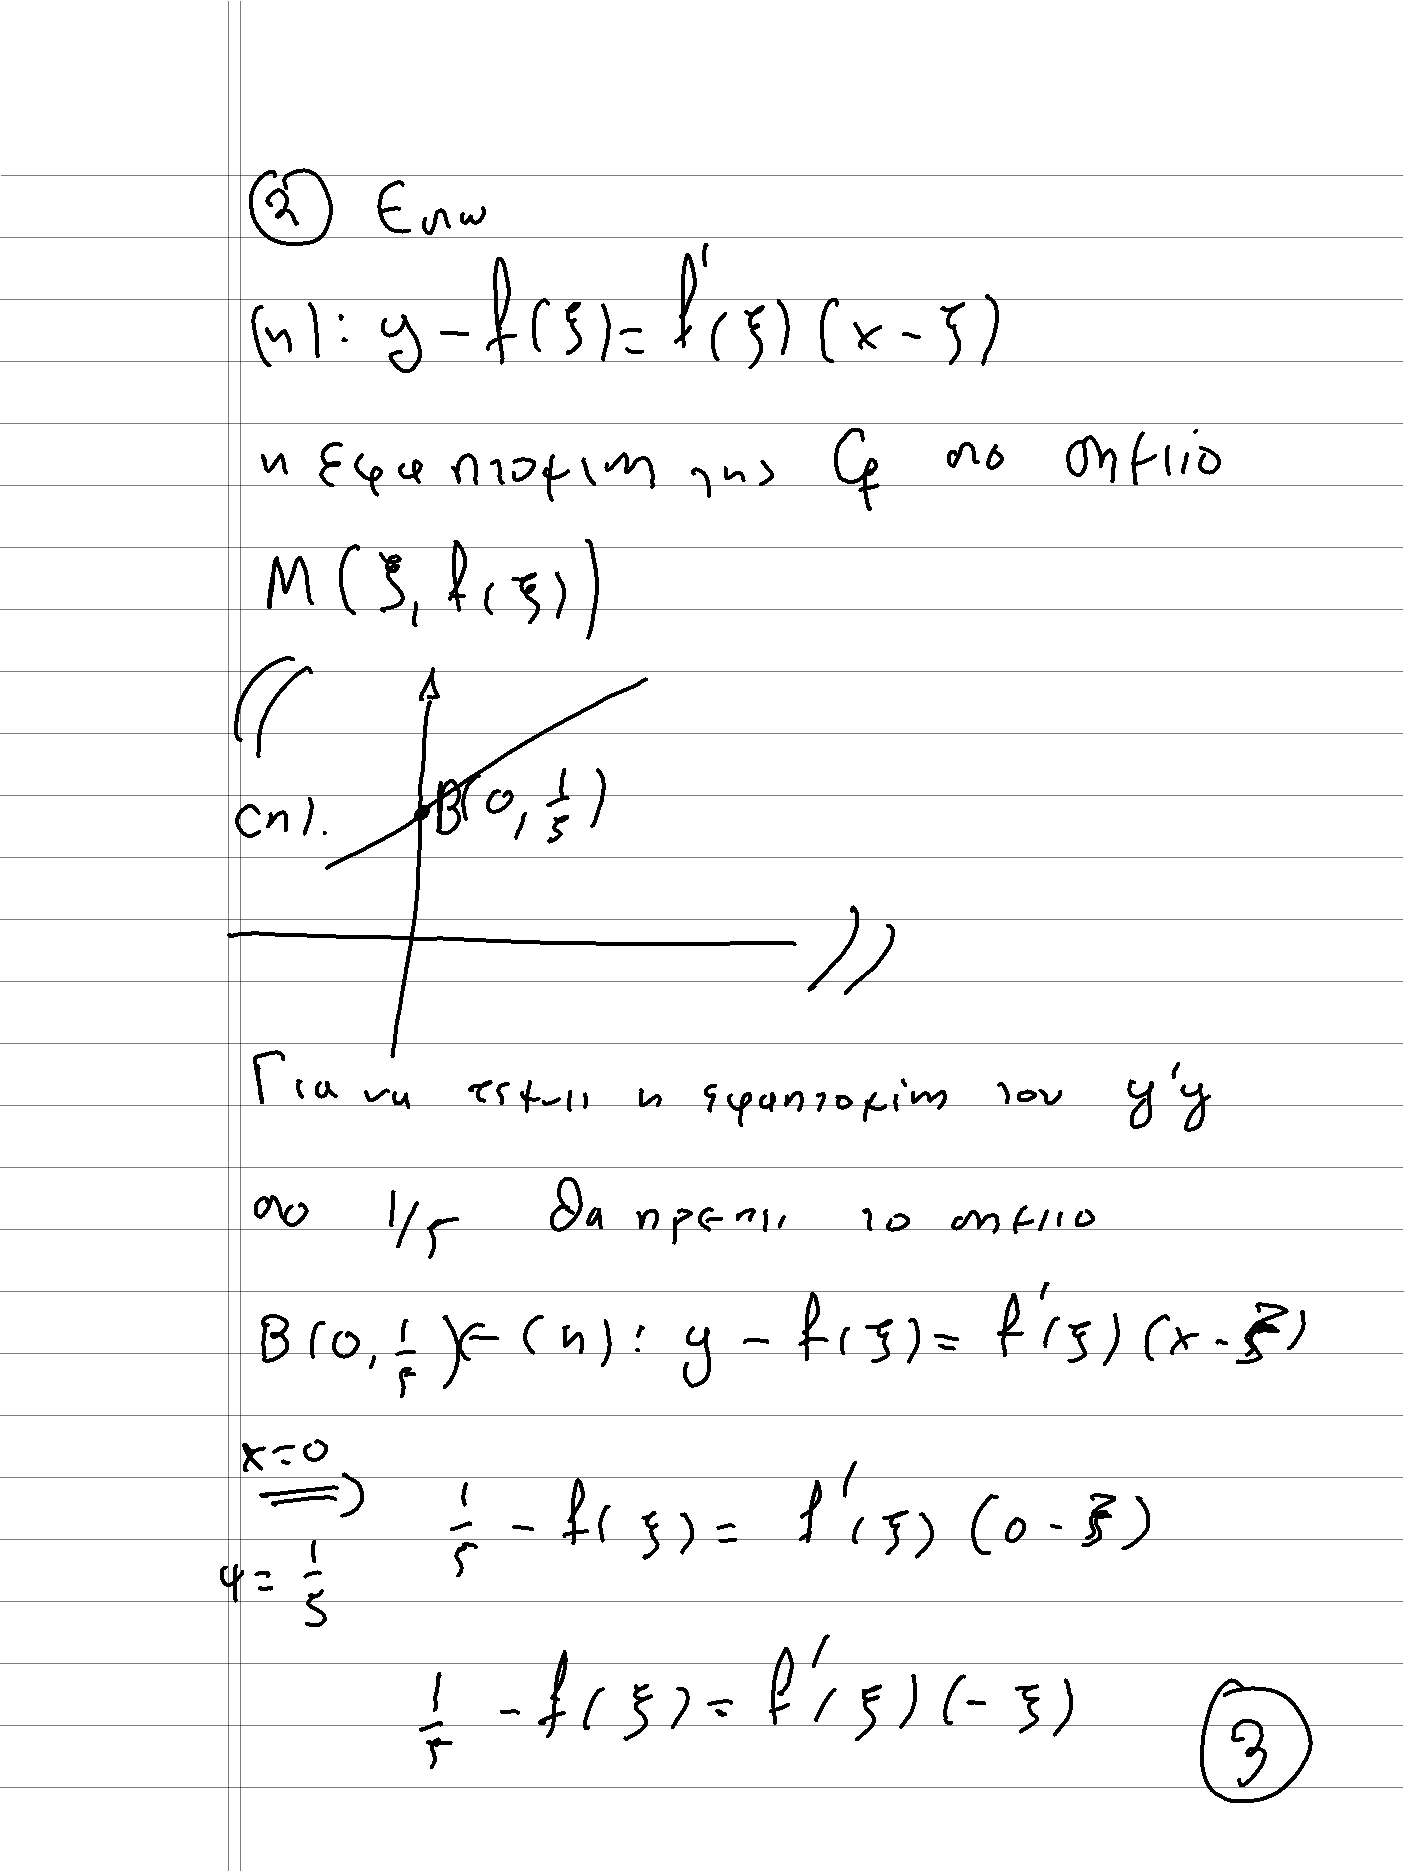 ② Εστω
(η): y - f(ξ) = f'(ξ)(x - ξ)
η εφαπτομενη της Cf στο σημειο
M(ξ, f(ξ))
((
B(0, 1/5)
(η).
))
Για να τεμνει η εφαπτομενη τον y'y
στο 1/5 θα πρεπει το σημειο
B(0, 1/5) ∈ (η): y - f(ξ) = f'(ξ)(x - ξ)
x=0
⇒ 1/5 - f(ξ) = f'(ξ)(0 - ξ)
ψ = 1/5
1/5 - f(ξ) = f'(ξ)(-ξ)
③